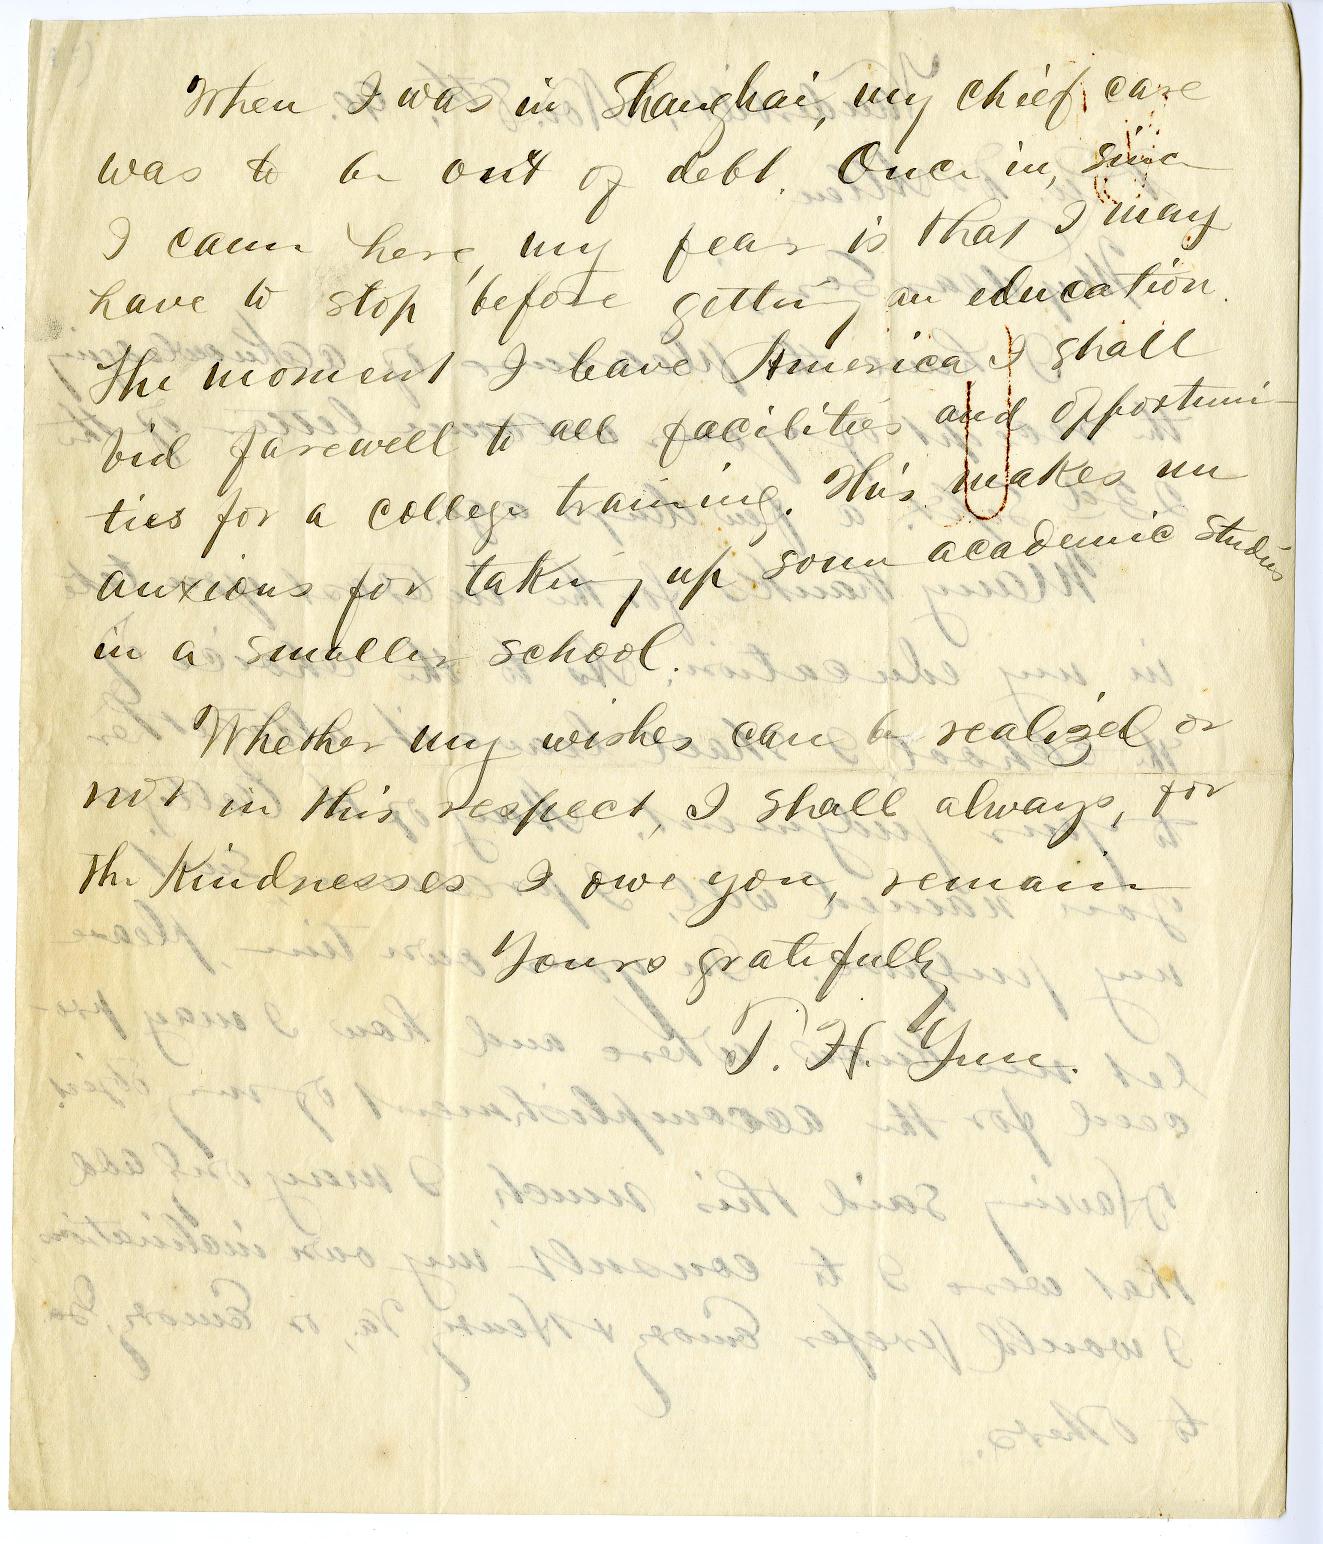 When I was in Shanghai, my chief care
was to be out of debt. Once in, since
I came here, my fear is that I may
have to stop before getting an education.
The moment I leave America I shall
bid farewell to all facilities and opportuni-
ties for a college training. This makes me
anxious for taking up some academic studies
in a smaller school.
Whether my wishes can be realized or
not in this respect, I shall always, for
the kindnesses I owe you, remain
Yours gratefully
T. H. Yun.